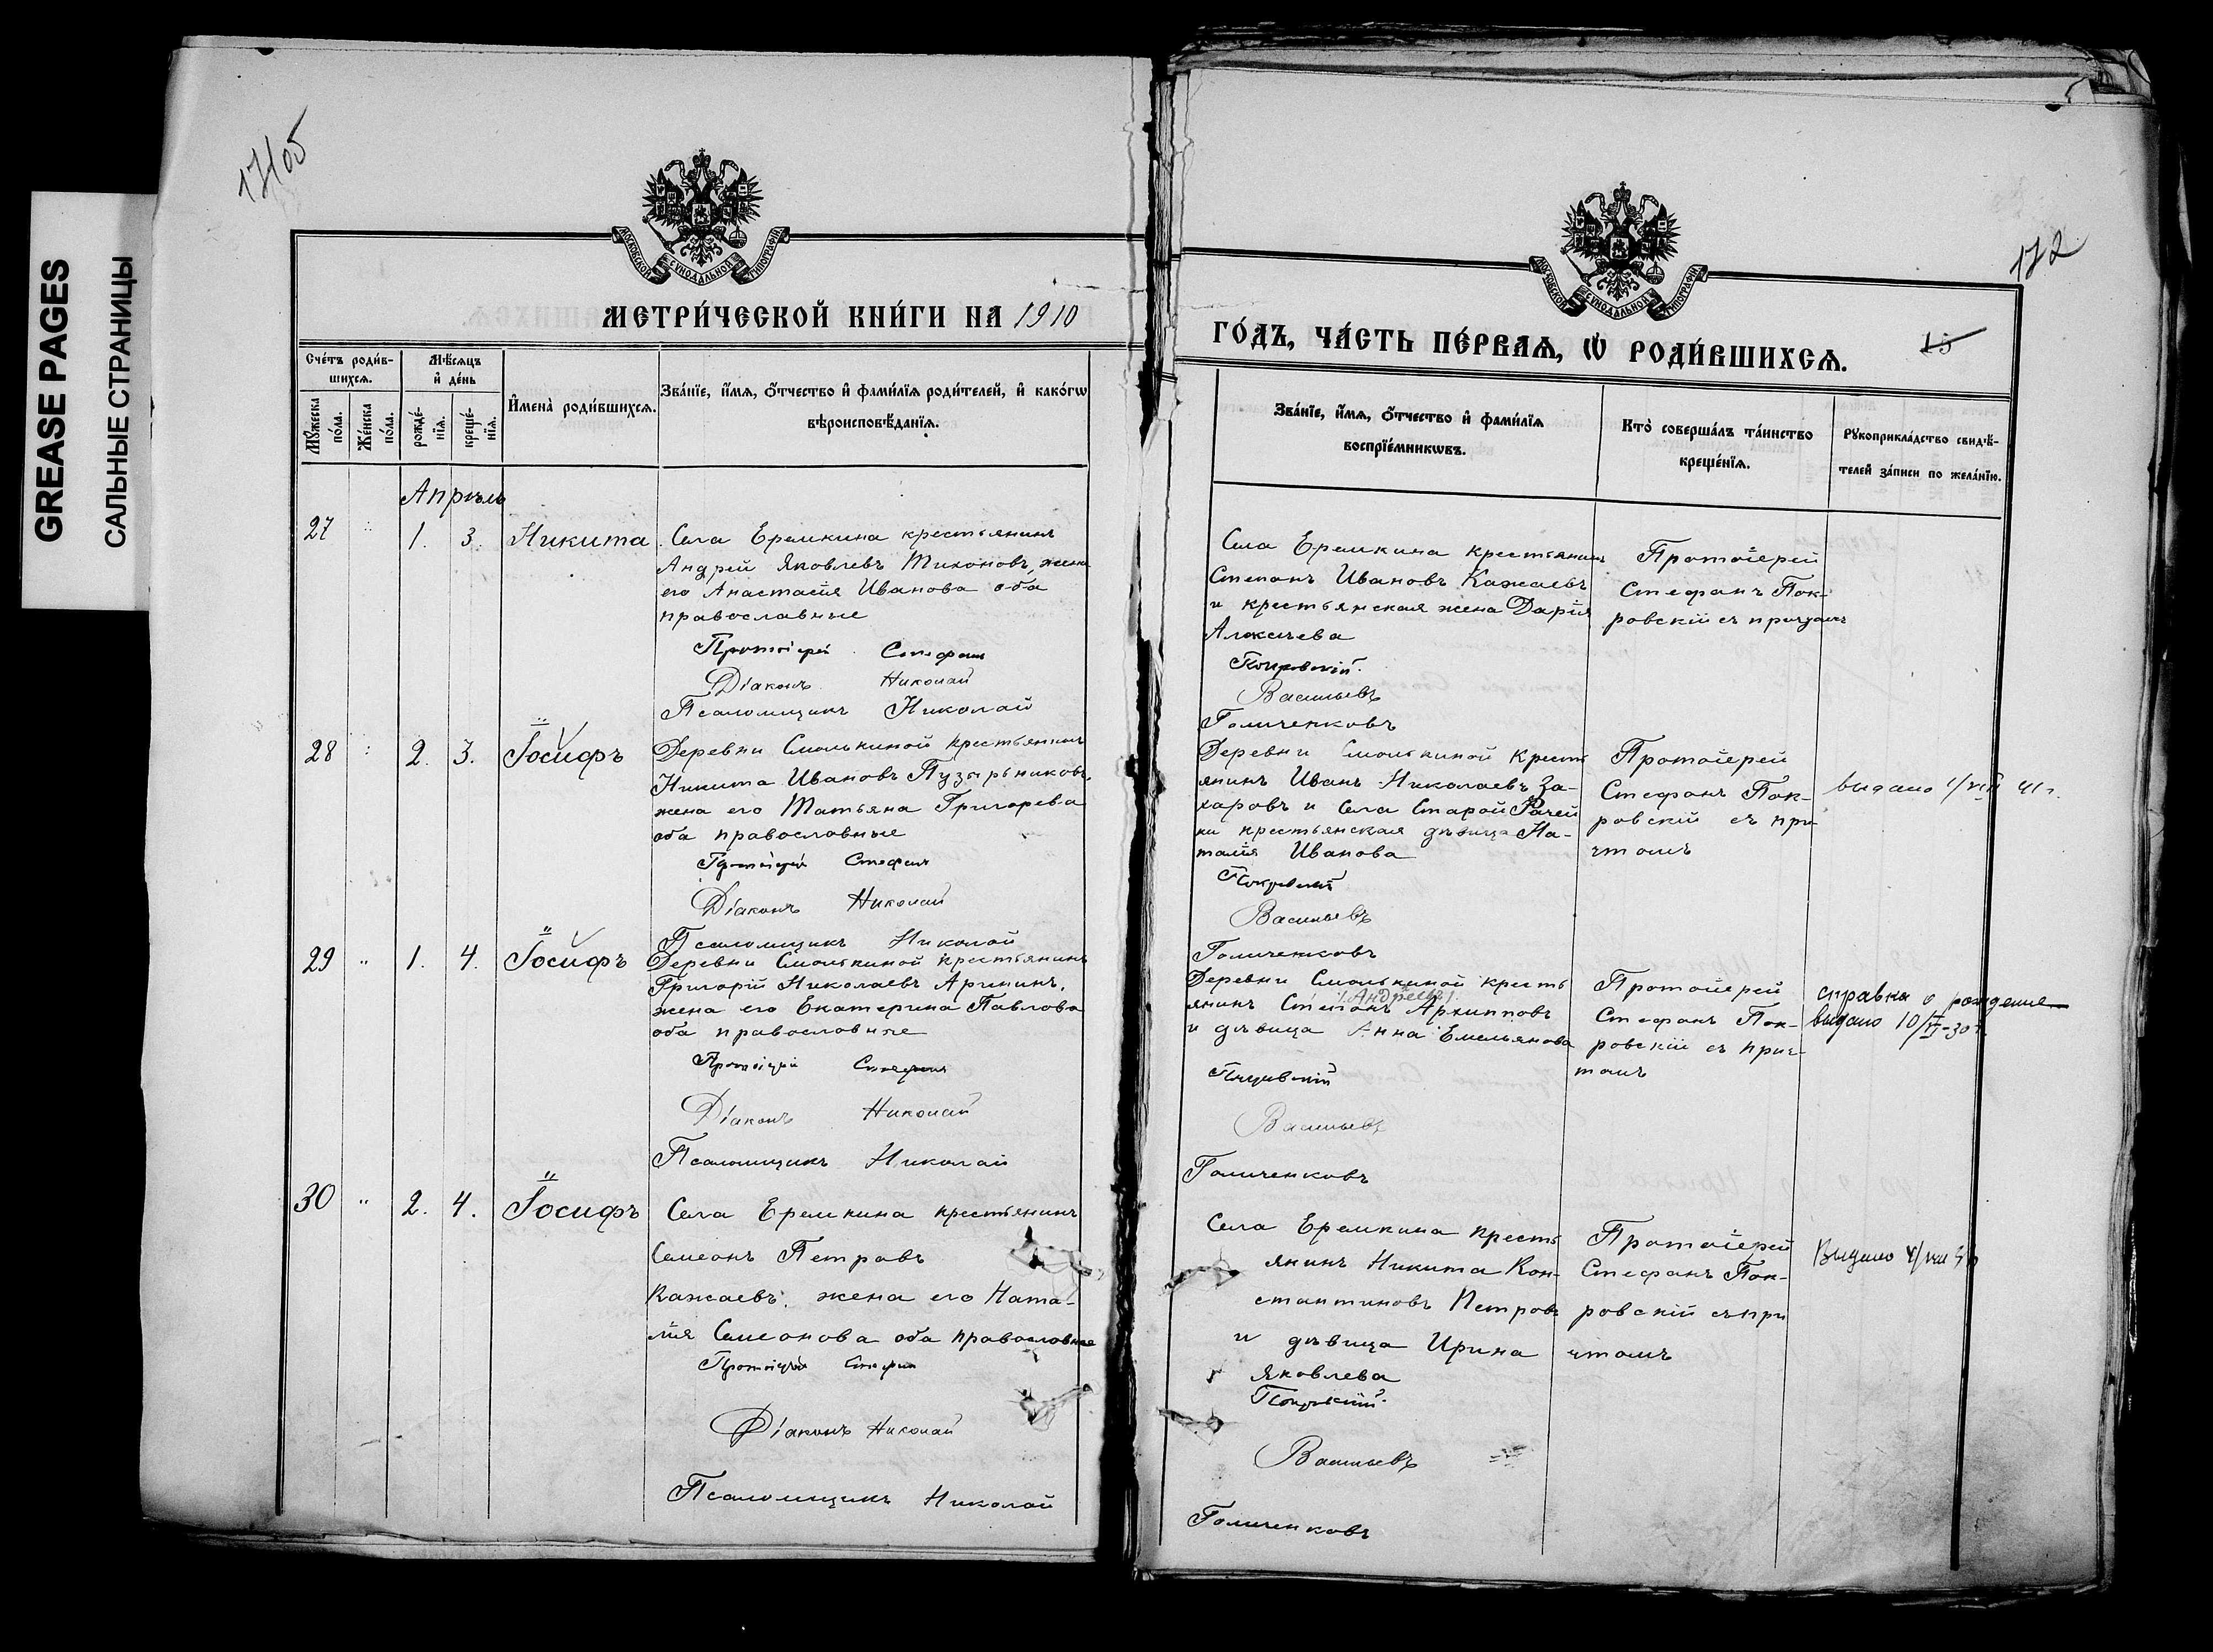 GREASE PAGES
САЛЬНЫЕ СТРАНИЦЫ
МОСКОВСКОЙ СѴНОДАЛЬНОЙ ТИПОГРАФІИ
МЕТРИ́ЧЕСКОЙ КНИ́ГИ НА 1910
Сче́тъ роди́в-
шихсѧ.
Мѣ́сѧцъ
и҆ де́нь
Мꙋ́жеска
по́ла.
Же́нска
по́ла.
рожде́-
нїѧ.
креще́-
нїѧ.
И҆мена̀ роди́вшихсѧ.
Зва́нїе, и҆́мѧ, ѻ҆́тчество и҆ фами́лїѧ роди́телей, и҆ како́гѡ
вѣроисповѣ́данїѧ.
Апрѣль
27 " 1. 3. Никита
Села Еремкина крестьянинъ
Андрей Яковлевъ Тихоновъ, жена
его Анастасія Иванова оба
православные
Протоіерей Стефанъ
Діаконъ Николай
Псаломщикъ Николай
28 " 2. 3. Іосифъ
Деревни Смолькиной крестьянинъ
Никита Ивановъ Пузырьниковъ,
жена его Татьяна Григорева
оба православные
Протоіерей Стефанъ
Діаконъ Николай
Псаломщикъ Николай
29 " 1. 4. Іосифъ
Деревни Смолькиной крестьянинъ
Григорій Николаевъ Арининъ,
жена его Екатерина Павлова
оба православные
Протоіерей Стефанъ
Діаконъ Николай
Псаломщикъ Николай
30 " 2. 4. Іосифъ
Села Еремкина крестьянинъ
Симеонъ Петровъ
Кажаевъ, жена его Ната-
лія Симеонова оба православные
Протоіерей Стефанъ
Діаконъ Николай
Псаломщикъ Николай
172
МОСКОВСКОЙ СѴНОДАЛЬНОЙ ТИПОГРАФІИ
ГО́ДЪ, ЧА́СТЬ ПЕ́РВАѦ, Ѡ҆ РОДИ́ВШИХСѦ.
15
Зва́нїе, и҆́мѧ, ѻ҆́тчество и҆ фами́лїѧ
воспрїе́мникѡвъ.
Кто̀ соверша́лъ та́инство
креще́нїѧ.
Рꙋкоприкла́дство свидѣ́-
телей за́писи по жела́нїю.
Села Еремкина крестьянинъ
Степанъ Ивановъ Кажаевъ
и крестьянская жена Дарія
Алексѣева
Покровскій.
Васильевъ
Голиченковъ
Протоіерей
Стефанъ Пок-
ровскій съ причтомъ
Деревни Смолькиной кресть
янинъ Иванъ Николаевъ За-
харовъ и села Старой Рачей
ки крестьянская дѣвица На-
талія Иванова
Покровскій
Васильевъ
Голиченковъ
Протоіерей
Стефанъ Пок-
ровскій съ при-
чтомъ
выдано 1/VIII 41 г.
Деревни Смолькиной кресть
/.Андреевъ/.
янинъ Степанъ Архиповъ
и дѣвица Анна Емельянова
Покровскій
Васильевъ
Голиченковъ
Протоіерей
Стефанъ Пок-
ровскій съ прич-
томъ
справка о рождение
выдано 10/VI-30 г.
Села Еремкина кресть
янинъ Никита Кон-
стантиновъ Петровъ
и дѣвица Ирина
Яковлева
Покровскій.
Васильевъ
Голиченковъ
Протоіерей
Стефанъ Пок-
ровскій съ при
чтомъ
Выдано